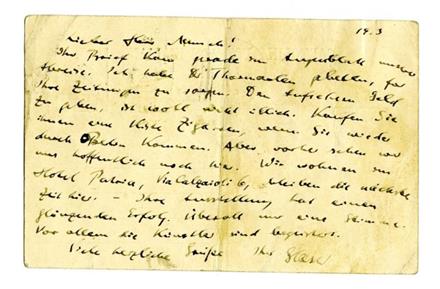 19.3
Lieber Herr Munch!
Ihr Brief kam gerade im Augenblick unserer
Abreise. Ich habe Thomaaten gebeten, für
Ihre Zeitungen zu sorgen. Den Aufsehern Geld
zu geben, ist wohl nicht üblich. Kaufen Sie
ihnen eine Kiste Zigarren, wenn Sie wieder
durch kommen. Aber vorher sehen wir
uns hoffentlich noch hier. Wir wohnen im
Hotel Patria, Via Calzaioli 6, bleiben die nächste
Zeit hier. – Ihre Ausstellung hat einen
glänzenden Erfolg. Überall nur eine Stimme.
Vor allem die Künstler sind begeistert.
Viele herzliche Grüße Ihr Glaser